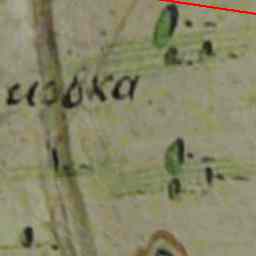 иовка